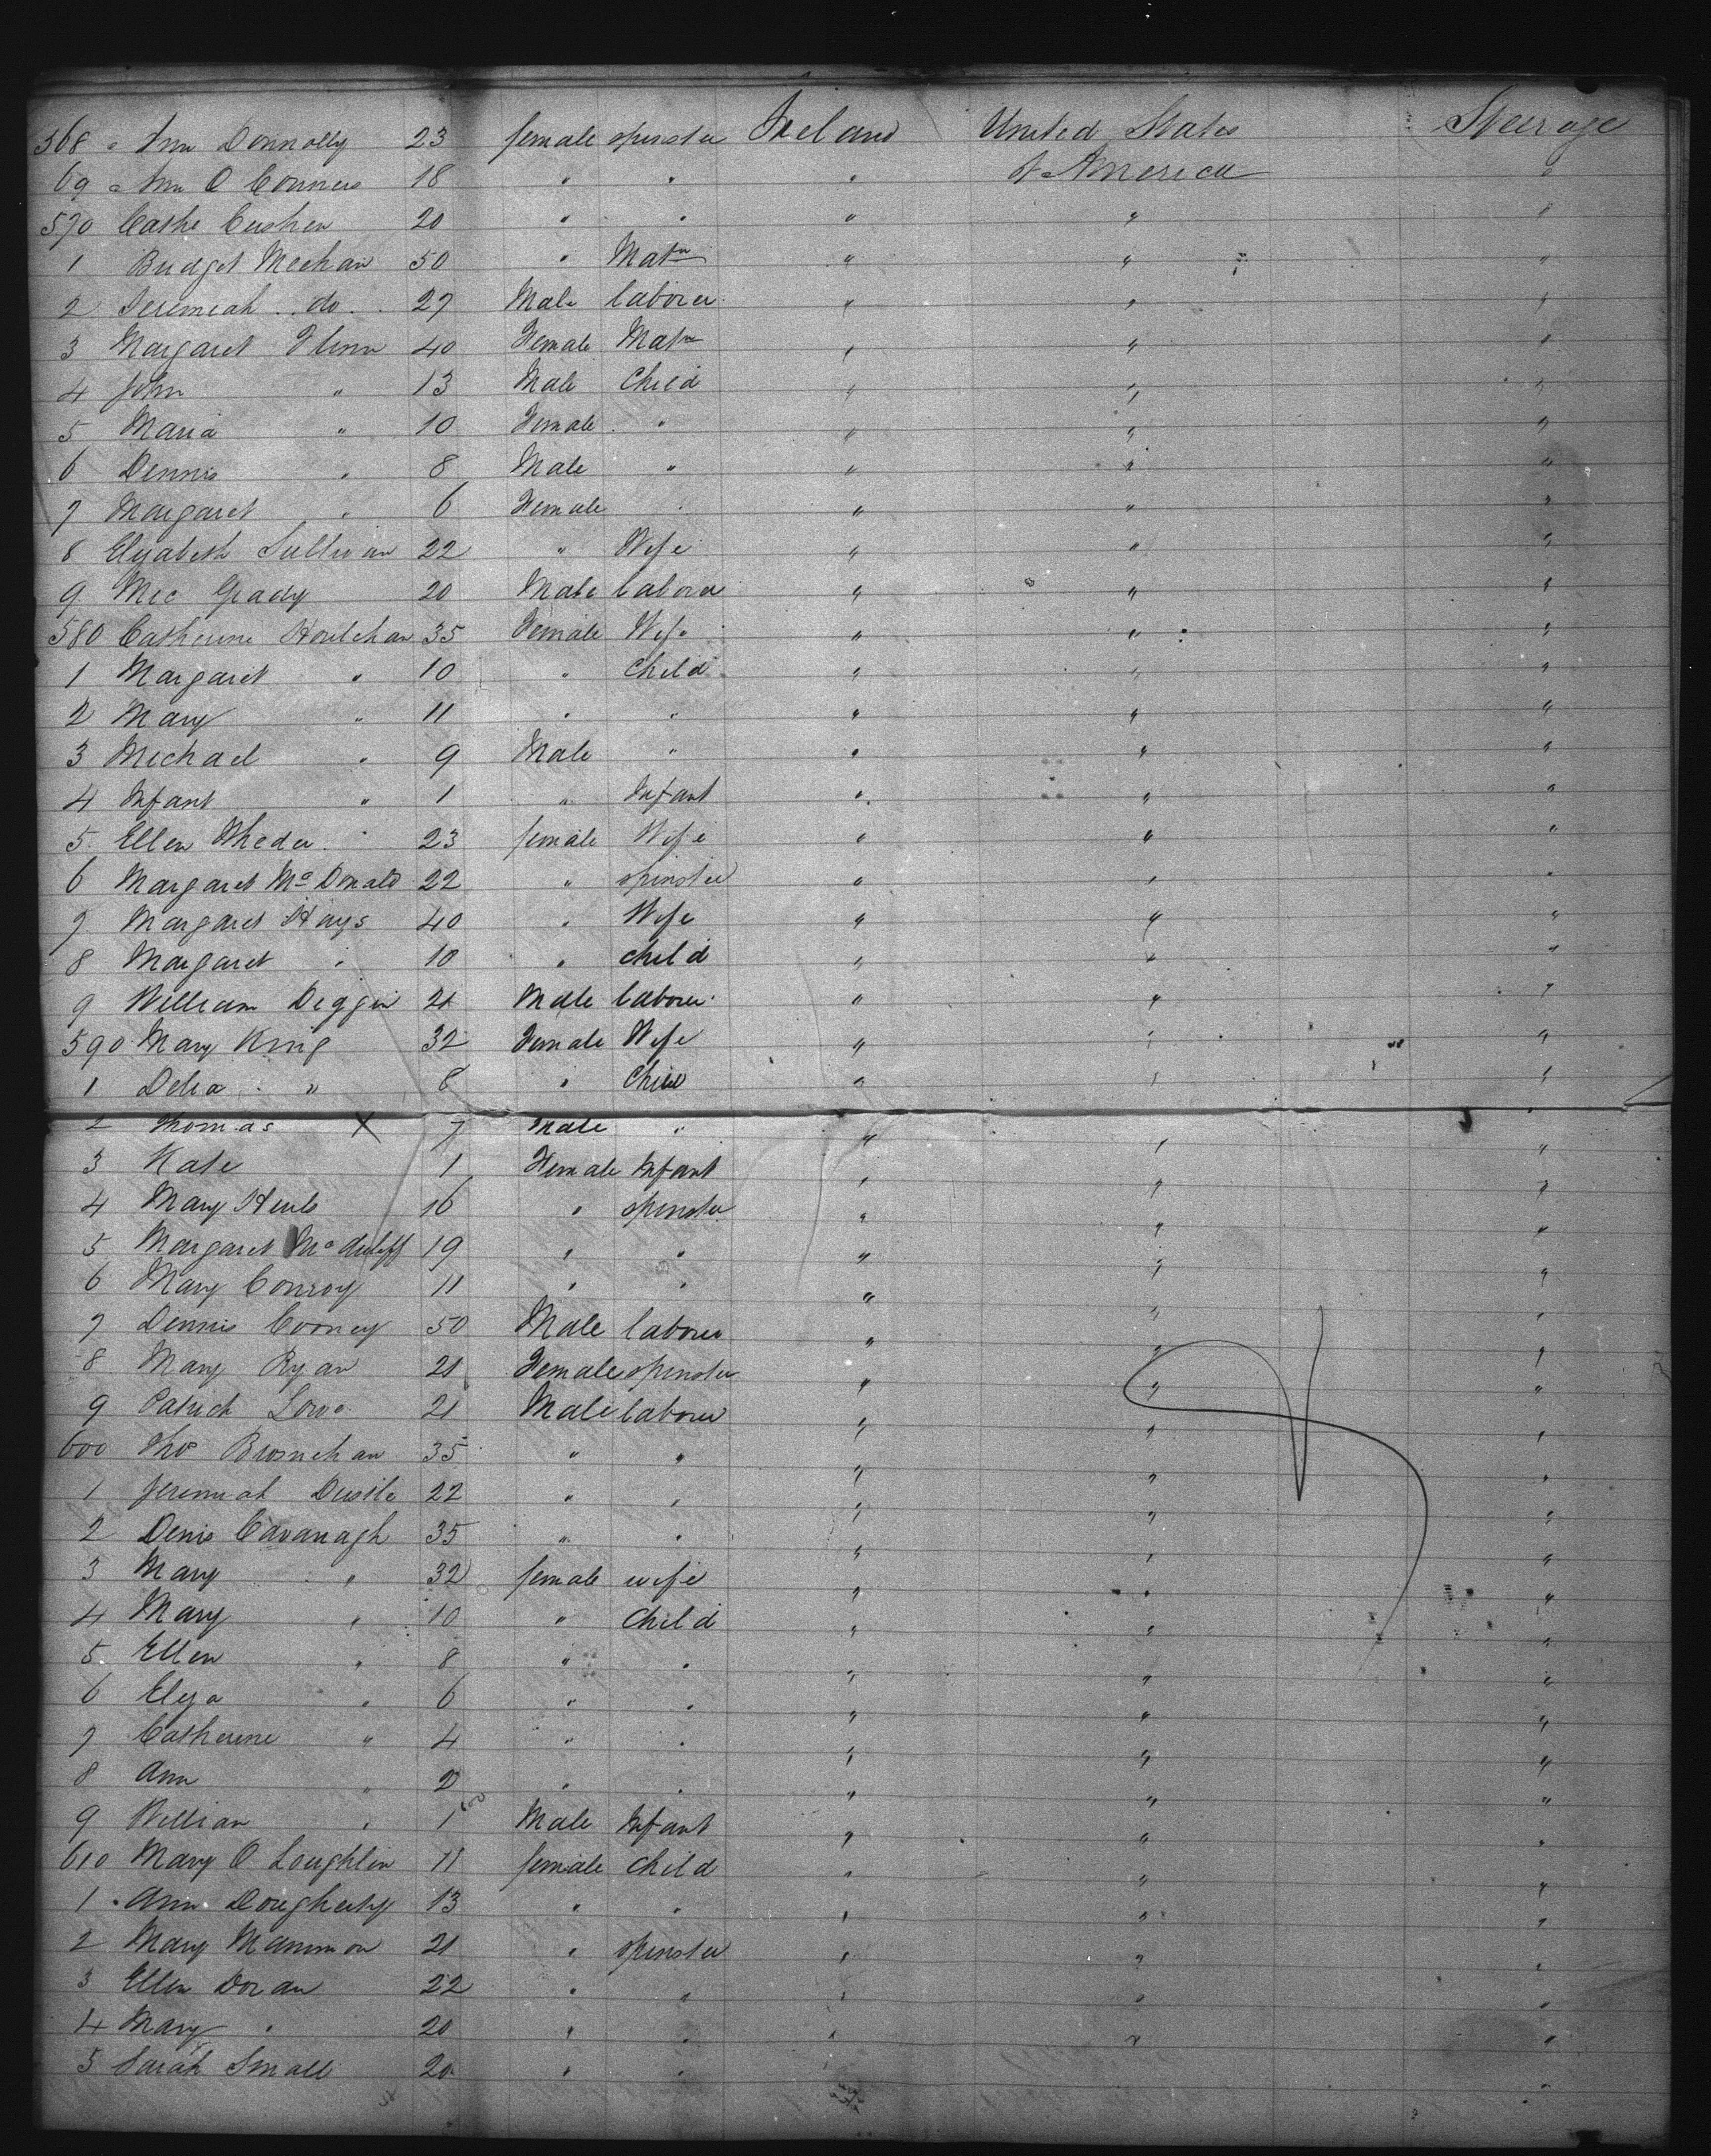 568 " Ann Donnolly 23 female spinster Ireland United States Steerage
69 " Ann O Conners 18 " " " of America "
570 Cathe Cushen 20 " " " " "
1 Bridget Meehan 50 " Matn " " "
2 Jeremiah do 27 Male laborer " " "
3 Margaret Flinn 40 Female Matn " " "
4 John " 13 Male Child " " "
5 Maria " 10 Female " " " "
6 Dennis " 8 Male " " " "
7 Margaret " 6 Female " " " "
8 Elizabeth Sullivan 22 " Wife " " "
9 Mic Grady 20 Male laborer " " "
580 Catherine Houlehan 35 Female Wife " " "
1 Margaret " 10 " child " " "
2 Mary " 11 " " " " "
3 Michael " 9 Male " " " "
4 Infant " 1 " Infant " " "
5 Ellen 23 female Wife " " "
6 Margaret Mc Donald 22 " spinster " " "
7 Margaret Hays 40 " Wife " " "
8 Margaret " 10 " child " " "
9 William Diggin 21 Male laborer " " "
590 Mary King 32 Female Wife " " "
1 Delia " 8 " Child " " "
2 Thomas X 7 Male " " " "
3 Kate 1 Female Infant " " "
4 Mary 16 " spinster " " "
5 Margaret Mc Auliff 19 " " " " "
6 Mary Conroy 11 " " " " "
7 Dennis Cooney 50 Male laborer " " "
8 Mary Ryan 21 Female spinster " " "
9 Patrick Lowe 21 Male laborer " " "
600 Thos Brosnehan 35 " " " " "
1 Jeremiah 22 " " " " "
2 Denis Cavanagh 35 " " " " "
3 Mary " 32 female wife " " "
4 Mary " 10 " Child " " "
5 Ellen " 8 " " " " "
6 Eliza " 6 " " " " "
7 Catherine " 4 " " " " "
8 Ann " 2 " " " " "
9 William " 1 Male Infant " " "
610 Mary O Loughlin 11 female child " " "
1 Ann Dougherty 13 " " " " "
2 Mary Mannion 21 " spinster " " "
3 Ellen Doran 22 " " " " "
4 Mary " 20 " " " " "
5 Sarah Small 20 " " "